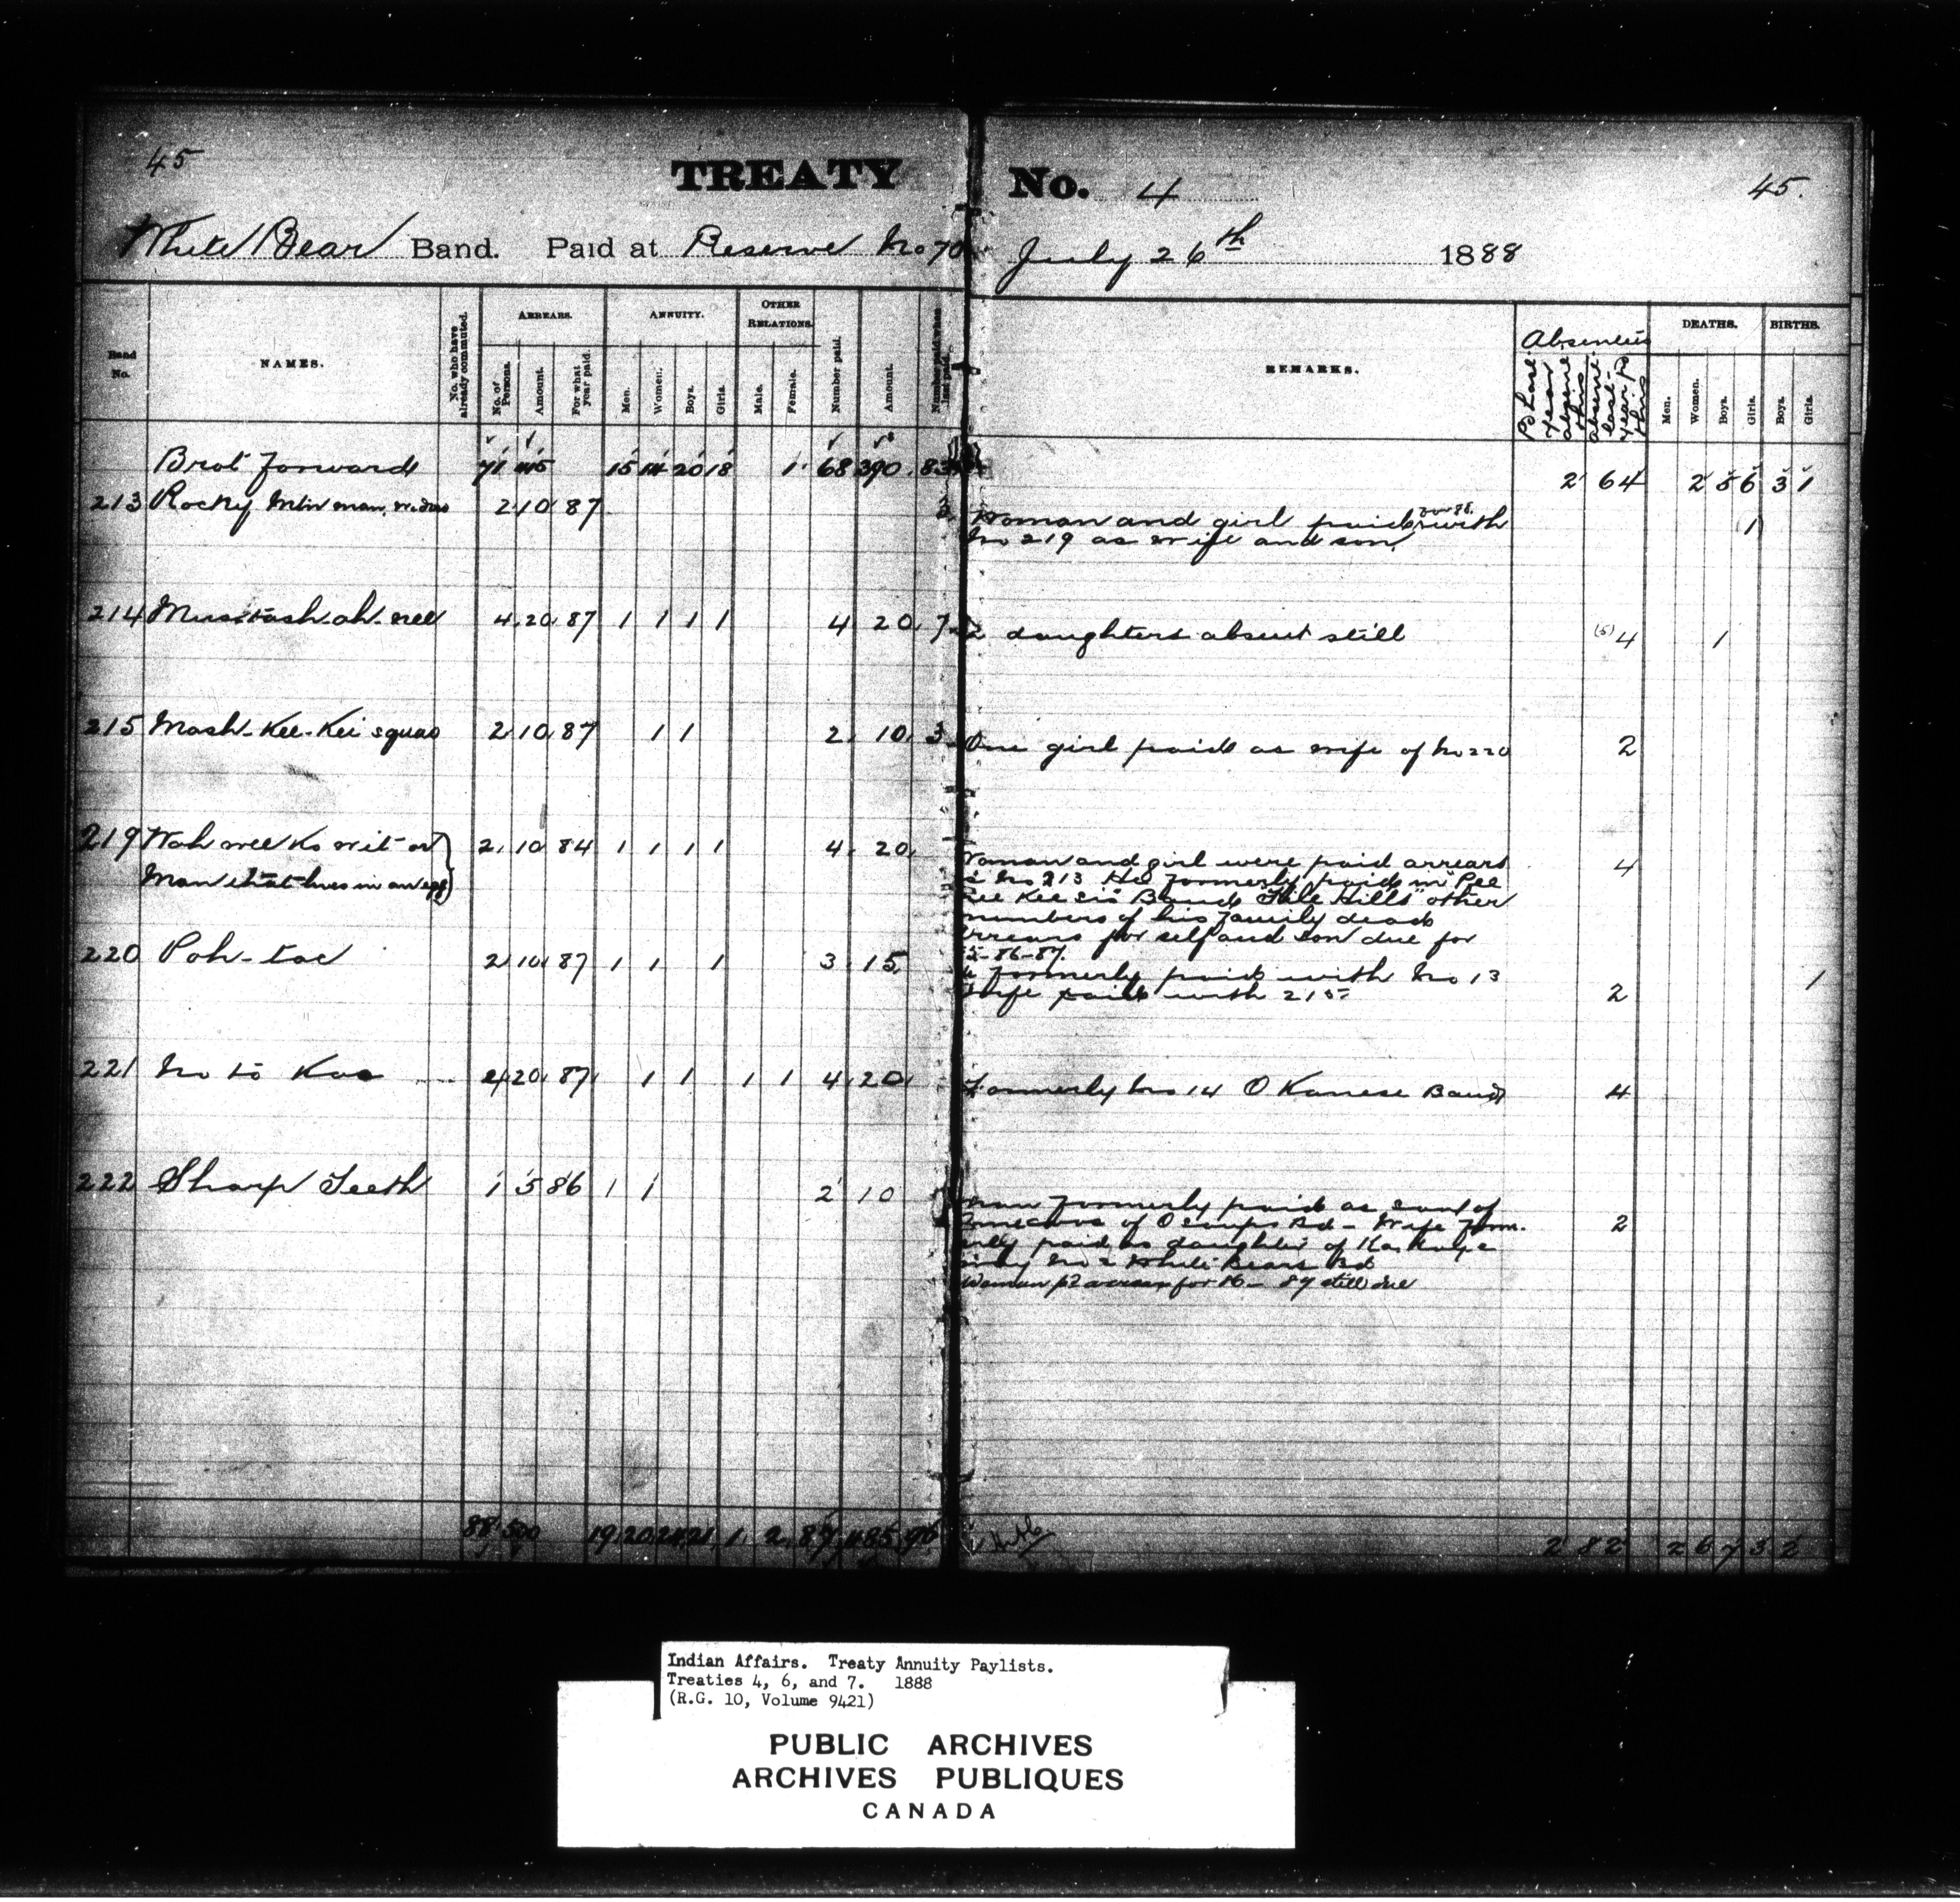 45
TREATY No. 4
45.
White Bear Band. Paid at Reserve No 70 July 26th 1888
Band No.
NAMES.
No. who have already commuted.
ARREARS.
No. of Persons.
Amount.
For what year paid.
ANNUITY.
Men.
Women.
Boys.
Girls.
OTHER RELATIONS.
Male.
Female.
Number paid.
Amount.
REMARKS.
Absentees
Pd last year absent this
absent last year Pd this
DEATHS.
Men.
Women.
Boys.
Girls.
BIRTHS.
Boys.
Girls.
Brot forward 71 15 20 18 1 68 390 83 2 64 2 5 6 3 1
213 Rocky Mtn man, widow 2 10 87 Woman and girl paid with 1
No 219 as wife and son.
214 4 20 87 1 1 1 1 4 20 7 2 daughters absent still (5) 4 1
215 Mash-Kee-Kei squao 2 10 87 1 1 2 10 3 One girl paid as wife of No 220 2
219 2 10 84 1 1 1 1 4 20 Woman and girl were paid arrears 4
Man that lives in an egg
No 213 He formerly paid in Pee
Band File Hills other
members of his family dead
Arrears for self and son due for
85-86-87.
220 Poh-tac 2 10 87 1 1 1 3 15 formerly paid with No 13 1
Wife paid with 215 2
221 No to Kac 4 20 87 1 1 1 1 4 20 Formerly No 14 O Kanese Band 4
222 Sharp Teeth 1 5 86 1 1 2 10 Man formerly paid as son of
of Bd - Wife form- 2
erly paid as daughter of
No 2 White Bears Bd
Woman for 86 - 87 still due
88 500 19 20 24 21 1 2 87 485 96 2 82 2 6 7 3 2
Indian Affairs. Treaty Annuity Paylists.
Treaties 4, 6, and 7. 1888
(R.G. 10, Volume 9421)
PUBLIC ARCHIVES
ARCHIVES PUBLIQUES
CANADA